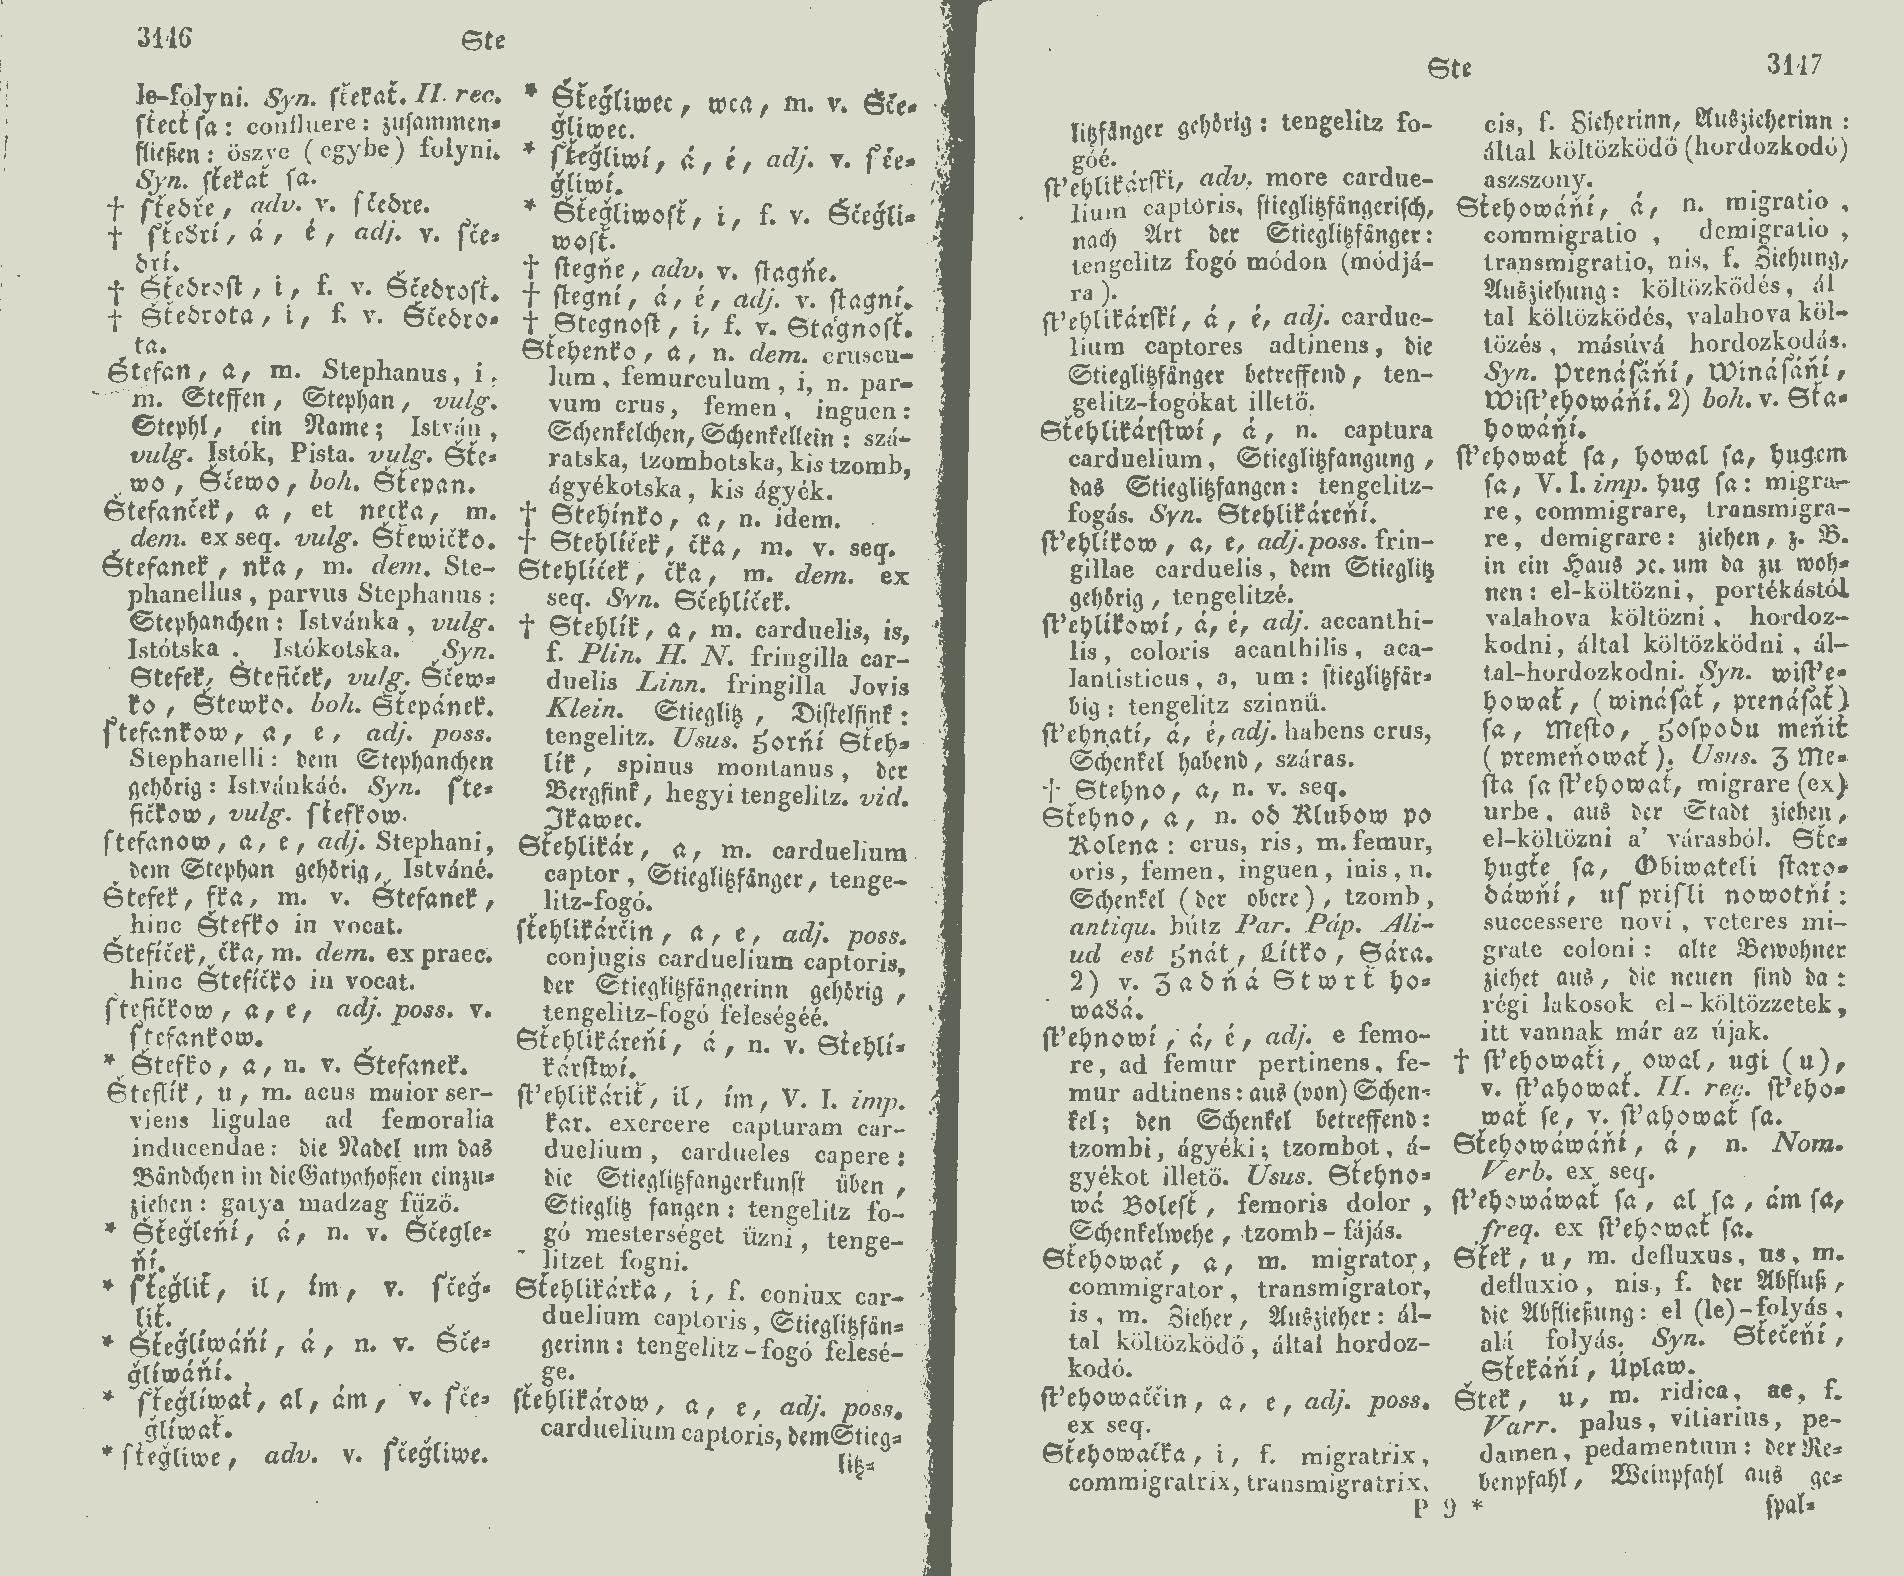 3146
Ste
le-folyni. Syn. sťekať. II. rec.
sťecť sa: confluere: zusammen-
fließen: öszve (egybe) folyni.
Syn. sťekať sa.
† sťedre, adv. v. sčedre.
† sťedrí, á, é, adj. v. sče-
drí.
† Sťedrosť, i, f. v. Sčedrosť.
† Sťedrota, i, f. v. Sčedro-
ta.
Štefan, a, m. Stephanus, i,
m. Steffen, Stephan, vulg.
Stephl, ein Name; István,
vulg. Istók, Pista. vulg. Šte-
wo, Ščewo, boh. Štepan.
Štefanček, a, et nečka, m.
dem. ex seq. vulg. Štewičko.
Štefanek, nka, m. dem. Ste-
phanellus, parvus Stephanus:
Stephanchen: Istvánka, vulg.
Istótska. Istókotska. Syn.
Štefek, Štefiček, vulg. Ščew-
ko, Štewko. boh. Štepánek.
štefankow, a, e, adj. poss.
Stephanelli: dem Stephanchen
gehörig: Istvánkáé. Syn. šte-
fičkow, vulg. štefkow.
štefanow, a, e, adj. Stephani,
dem Stephan gehörig, Istváné.
Štefek, fka, m. v. Štefanek,
hinc Štefko in vocat.
Štefíček, čka, m. dem. ex praec.
hinc Štefíčko in vocat.
štefičkow, a, e, adj. poss. v.
štefankow.
* Štefko, a, n. v. Štefanek.
Šteflík, u, m. acus maior ser-
viens ligulae ad femoralia
inducendae: die Nadel um das
Bändchen in die Gatyahoßen einzu-
ziehen: gatya madzag fűző.
* Šťegleňí, á, n. v. Ščegle-
ňí.
* šťegliť, il, ím, v. ščeg-
liť.
* Šťeglíwáňí, á, n. v. Šče-
glíwáňí.
* šťeglíwať, al, ám, v. šče-
glíwať.
* šťegliwe, adv. v. ščegliwe.
* Šťegliwec, wca, m. v. Šče-
gliwec.
* šťegliwí, á, é, adj. v. šče-
gliwí.
* Šťegliwosť, i, f. v. Ščegli-
wosť.
† stegňe, adv. v. stagňe.
† stegní, á, é, adj. v. stagní.
† Stegnosť, i, f. v. Stagnosť.
Stehenko, a, n. dem. cruscu-
lum, femurculum, i, n. par-
vum crus, femen, inguen:
Schenkelchen, Schenkellein: szá-
ratska, tzombotska, kis tzomb,
ágyékotska, kis ágyék.
† Stehínko, a, n. idem.
† Stehlíček, čka, m. v. seq.
Stehlíček, čka, m. dem. ex
seq. Syn. Sčehlíček.
† Stehlík, a, m. carduelis, is,
f. Plin. H. N. fringilla car-
duelis Linn. fringilla Jovis
Klein. Stieglitz, Distelfink:
tengelitz. Usus. Horňí Stěh-
lík, spinus montanus, der
Bergfink, hegyi tengelitz. vid.
Jkawec.
Sťehlikár, a, m. carduelium
captor, Stieglitzfänger, tenge-
litz-fogó.
sťehlikárčin, a, e, adj. poss.
conjugis carduelium captoris,
der Stieglitzfängerinn gehörig,
tengelitz-fogó feleségéé.
Sťehlikáreňí, á, n. v. Stehli-
kárstwí.
sťehlikáriť, il, ím, V. I. imp.
kar. exercere capturam car-
duelium, cardueles capere:
die Stieglitzfangerkunst üben,
Stieglitz fangen: tengelitz fo-
gó mesterséget üzni, tenge-
litzet fogni.
Sťehlikárka, i, f. coniux car-
duelium captoris, Stieglitzfän-
gerinn: tengelitz-fogó felesé-
ge.
sťehlikárow, a, e, adj. poss.
carduelium captoris, dem Stieg-
litz-
Ste
3147
litzfänger gehörig: tengelitz fo-
góé.
sťehlikárski, adv. more cardue-
lium captoris, stieglitzfängerisch,
nach Art der Stieglitzfänger:
tengelitz fogó módon (módjá-
ra).
sťehlikárskí, á, é, adj. cardue-
lium captores adtinens, die
Stieglitzfänger betreffend, ten-
gelitz-fogókat illető.
Sťehlikárstwí, á, n. captura
carduelium, Stieglitzfangung,
das Stieglitzfangen: tengelitz-
fogás. Syn. Stehlikáreňí.
sťehlíkow, a, e, adj. poss. frin-
gillae carduelis, dem Stieglitz
gehörig, tengelitzé.
sťehlíkowí, á, é, adj. accanthi-
lis, coloris acanthilis, aca-
lantisticus, a, um: stieglitzfär-
big: tengelitz szinnű.
sťehnatí, á, é, adj. habens crus,
Schenkel habend, száras.
† Stehno, a, n. v. seq.
Sťehno, a, n. od Klubow po
Kolena: crus, ris, m. femur,
oris, femen, inguen, inis, n.
Schenkel (der obere), tzomb,
antiqu. hútz Par. Páp. Ali-
ud est Hnát, Lítko, Sára.
2) v. Zadňá Stwrť ho-
wadá.
sťehnowí, á, é, adj. e femo-
re, ad femur pertinens, fe-
mur adtinens: aus (von) Schen-
kel; den Schenkel betreffend:
tzombi, ágyéki; tzombot, á-
gyékot illető. Usus. Stehno-
wá Bolesť, femoris dolor,
Schenkelwehe, tzomb-fájás.
Sťehowač, a, m. migrator,
commigrator, transmigrator,
is, m. Zieher, Auszieher: ál-
tal költözködő, által hordoz-
kodó.
sťehowaččin, a, e, adj. poss.
ex seq.
Sťehowačka, i, f. migratrix,
commigratrix, transmigratrix,
cis, f. Zieherinn, Auszieherinn:
által költözködő (hordozkodó)
aszszony.
Sťehowáňí, á, n. migratio,
commigratio, demigratio,
transmigratio, nis, f. Ziehung,
Ausziehung: költözködés, ál
tal költözködés, valahova köl-
tözés, másúvá hordozkodás.
Syn. Prenásáňí, Winásáňí,
Wisťehowáňí. 2) boh. v. Sťa-
howáňí.
sťehowať sa, howal sa, hugem
sa, V. I. imp. hug sa: migra-
re, commigrare, transmigra-
re, demigrare: ziehen, z. B.
in ein Haus ꝛc. um da zu woh-
nen: el-költözni, portékástól
valahova költözni, hordoz-
kodni, által költözködni, ál-
tal-hordozkodni. Syn. wisťe-
howať, (winásať, prenásať)
sa, Mesto, Hospodu meňiť
(premeňowať). Usus. Z Me-
sta sa sťehowať, migrare (ex)
urbe, aus der Stadt ziehen,
el-költözni a' várasból. Sťe-
hugťe sa, Obiwateli staro-
dáwňí, uš prišli nowotňí:
successere novi, veteres mi-
grate coloni: alte Bewohner
ziehet aus, die neuen sind da:
régi lakosok el-költözzetek,
itt vannak már az újak.
† sťehowati, owal, ugi (u),
v. sťahowať. II. rec. sťeho-
wať se, v. sťahowať sa.
Sťehowáwáňí, á, n. Nom.
Verb. ex seq.
sťehowáwať sa, al sa, ám sa,
freq. ex sťehowať sa.
Sťek, u, m. defluxus, us, m.
defluxio, nis, f. der Abfluß,
die Abfließung: el (le)-folyás,
alá folyás. Syn. Stečeňí,
Sťekáňí, Úplaw.
Štek, u, m. ridica, ae, f.
Varr. palus, vitiarius, pe-
damen, pedamentum: der Re-
benpfahl, Weinpfahl aus ge-
P 9 *
spal-